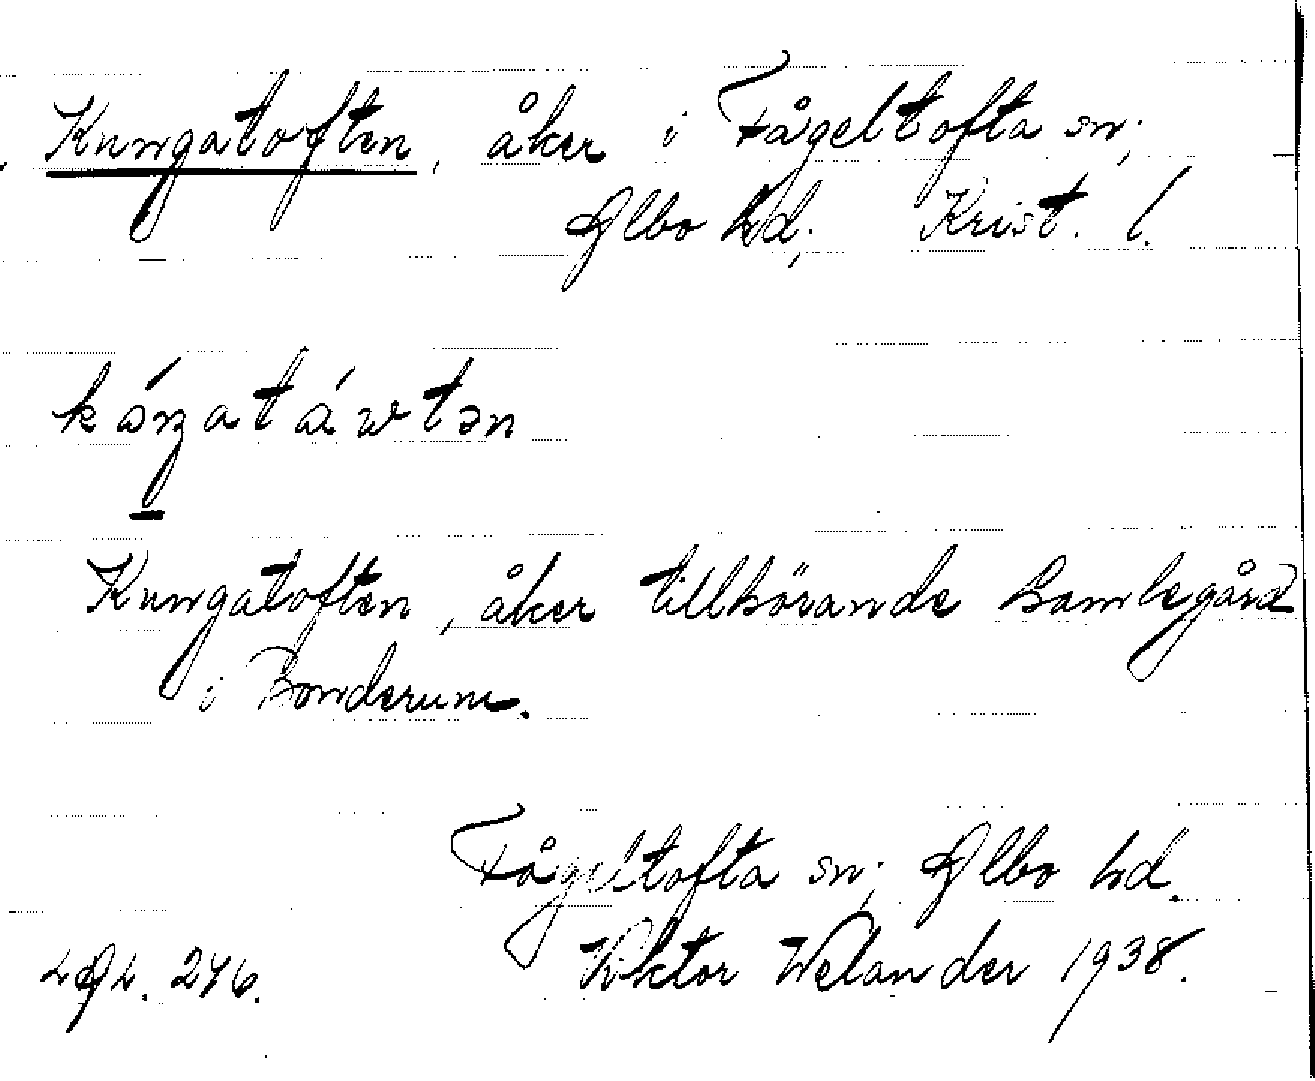 Kungatoften, åker i Fågeltofta sn;
Albo hd; Krist. l.
kóŋatáwtən
Kungatoften, åker tillhörande Gamlegård
i Bonderum.
Fågeltofta sn; Albo hd.
Viktor Welander 1938.
246.